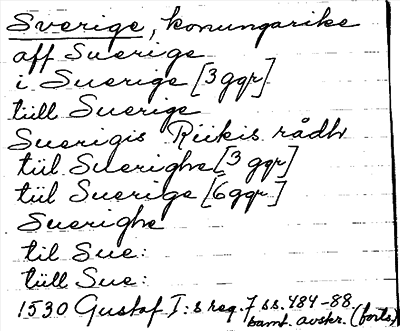 Sverige, konungarike
aff Suerige
i Suerige [3 ggr]
tüll Suerige
Suerigis Riikis rådh
tül Suerighe [3 ggr]
tül Suerige [6 ggr.]
Suerighe
til Sue:
tüll Sue:
1530 Gustaf I:s reg. 7 ss. 484-88.
samt. avskr. (forts.)